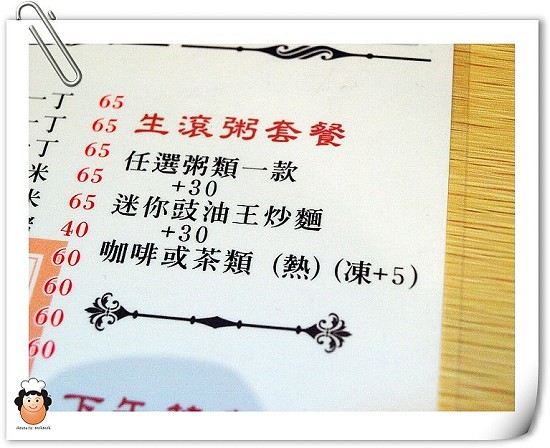 一丁 65
一丁 65
一丁 65
米 65
米 65
40
60
60
60
60
生滾粥套餐
任選粥類一款
+30
迷你豉油王炒麵
+30
咖啡或茶類 (熱) (凍+5)
下午